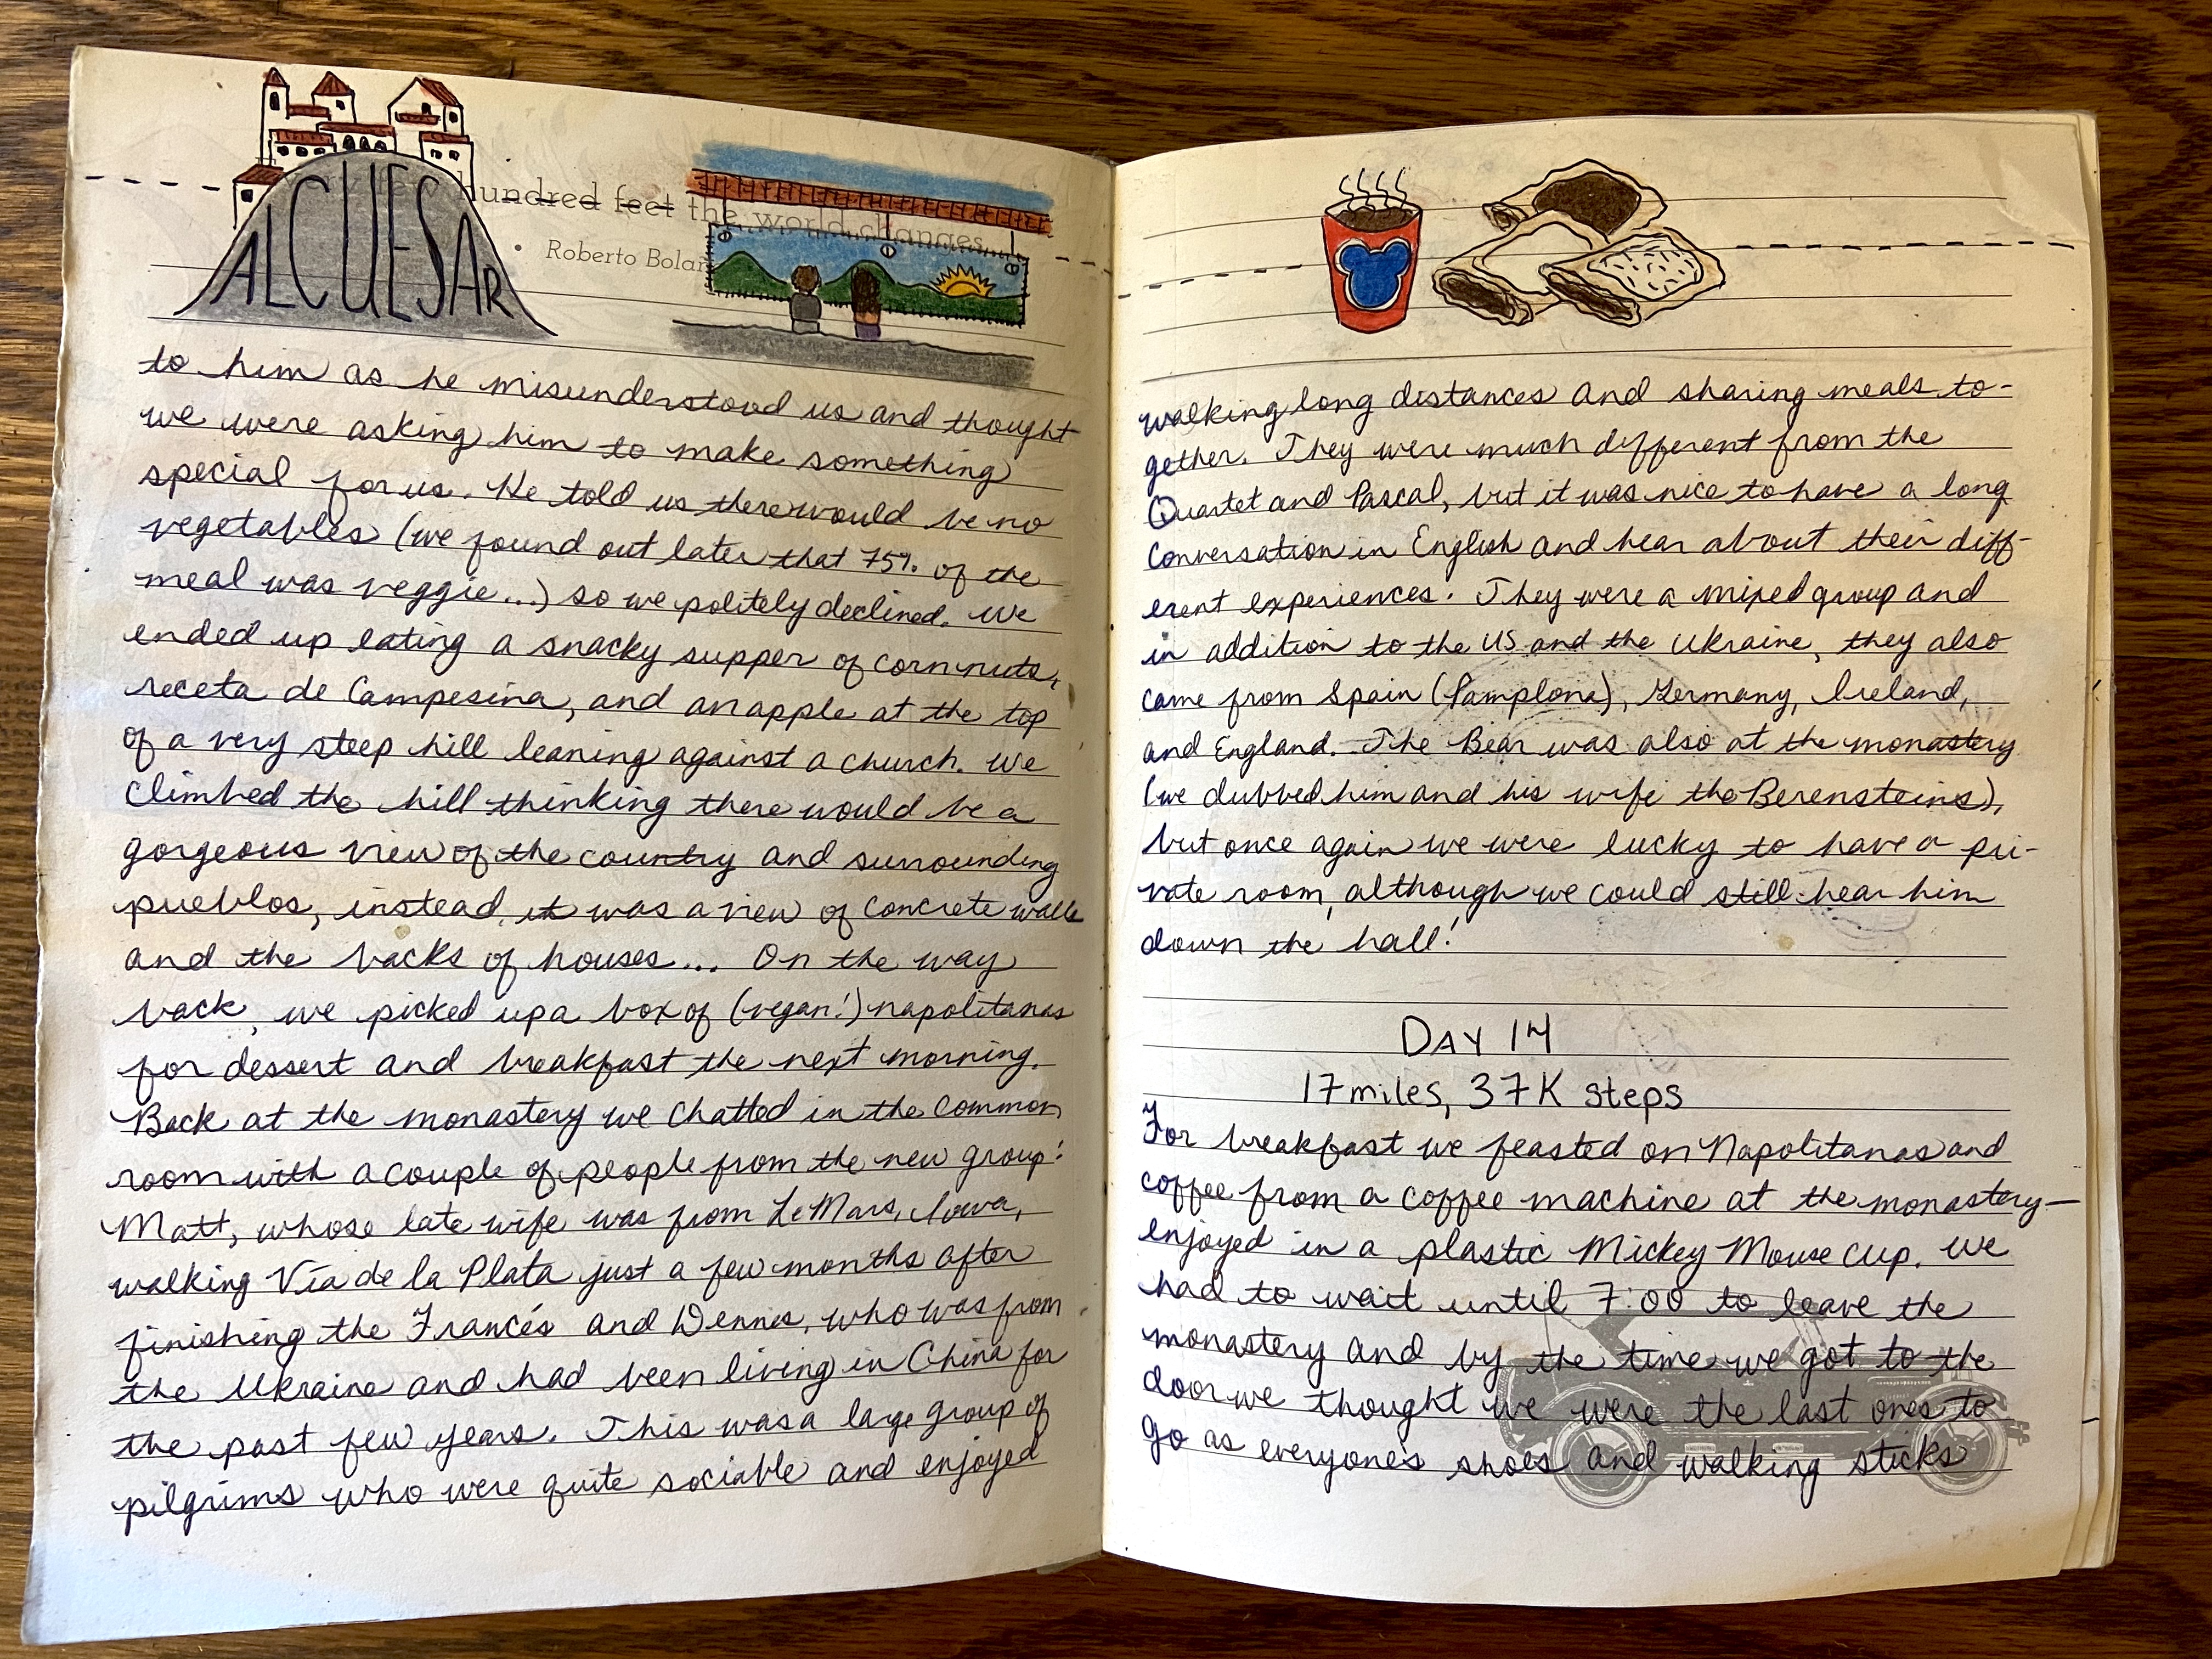 ALCUESAR
hundred feet the world changes
Roberto Bolañ
to him as he misunderstood us and thought
we were asking him to make something
special for us. He told us there would be no
vegetables (we found out later that 75% of the
meal was veggie...) so we politely declined. We
ended up eating a snacky supper of corn nuts,
receta de Campesina, and an apple at the top
of a very steep hill leaning against a church. We
climbed the hill thinking there would be a
gorgeous view of the country and surrounding
pueblos, instead, it was a view of concrete walls
and the backs of houses... On the way
back, we picked up a box of (vegan!) napolitanas
for dessert and breakfast the next morning.
Back at the monastery we chatted in the common
room with a couple of people from the new group:
Matt, whose late wife was from LeMars, Iowa,
walking Vía de la Plata just a few months after
finishing the Francés and Dennis, who was from
the Ukraine and had been living in China for
the past few years. This was a large group of
pilgrims who were quite sociable and enjoyed
walking long distances and sharing meals to-
gether. They were much different from the
Quartet and Pascal, but it was nice to have a long
conversation in English and hear about their diff-
erent experiences. They were a mixed group and
in addition to the US and the Ukraine, they also
came from Spain (Pamplona), Germany, Ireland,
and England. The Bear was also at the monastery
(we dubbed him and his wife the Berensteins),
but once again we were lucky to have a pri-
vate room, although we could still hear him
down the hall!
DAY 14
17 miles, 37K steps
For breakfast we feasted on Napolitanas and
coffee from a coffee machine at the monastery—
enjoyed in a plastic Mickey Mouse cup. We
had to wait until 7:00 to leave the
monastery and by the time we got to the
door we thought we were the last ones to
go as everyone's shoes and walking sticks